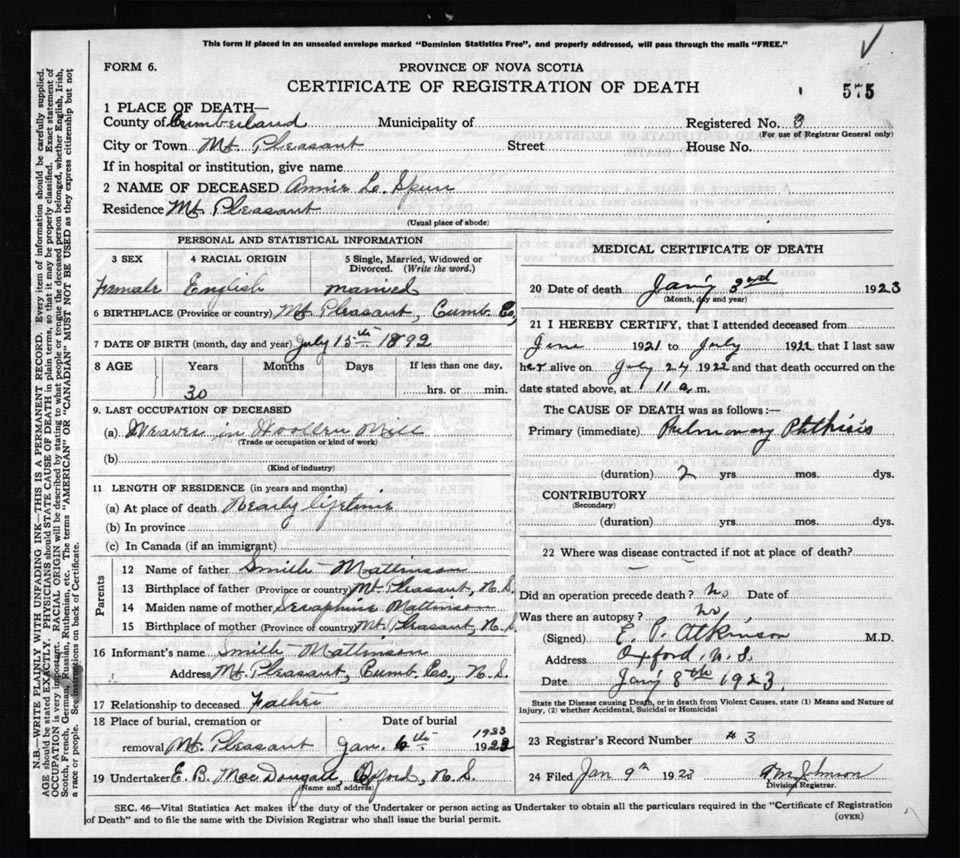 This form if placed in an unsealed envelope marked "Dominion Statistics Free", and properly addressed, will pass through the mails "FREE."
FORM 6.
PROVINCE OF NOVA SCOTIA
CERTIFICATE OF REGISTRATION OF DEATH
575
1 PLACE OF DEATH—
County of Cumberland Municipality of Registered No. 3
(For use of Registrar General only)
City or Town Mt. Pleasant Street House No.
If in hospital or institution, give name
2 NAME OF DECEASED Annie L. Spurr
Residence Mt Pleasant
(Usual place of abode)
PERSONAL AND STATISTICAL INFORMATION
3 SEX 4 RACIAL ORIGIN 5 Single, Married, Widowed or Divorced. (Write the word.)
Female English married
6 BIRTHPLACE (Province or country) Mt Pleasant, Cumb. Co,
7 DATE OF BIRTH (month, day and year) July 15th 1892
8 AGE Years Months Days If less than one day,
30 hrs. or min.
9. LAST OCCUPATION OF DECEASED
(a) Weaver in Woollen Mill
(Trade or occupation or kind of work)
(b)
(Kind of industry)
11 LENGTH OF RESIDENCE (in years and months)
(a) At place of death Nearly lifetime
(b) In province
(c) In Canada (if an immigrant)
Parents
12 Name of father Smith Mattinson
13 Birthplace of father (Province or country) Mt Pleasant, N.S.
14 Maiden name of mother Seraphine Mattinson
15 Birthplace of mother (Province or country) Mt. Pleasant, N.S.
16 Informant's name Smith Mattinson
Address Mt. Pleasant, Cumb. Co., N.S.
17 Relationship to deceased Father
18 Place of burial, cremation or Date of burial
removal Mt. Pleasant Jan. 6th 1923
19 Undertaker E. B. MacDougall, Oxford, N.S.
(Name and address)
MEDICAL CERTIFICATE OF DEATH
20 Date of death Jan'y 3rd 1923
(Month, day and year)
21 I HEREBY CERTIFY, that I attended deceased from
June 1921 to July 1922 that I last saw
her alive on July 24 1922 and that death occurred on the
date stated above, at 11 a m.
The CAUSE OF DEATH was as follows:—
Primary (immediate) Pulmonary Phthisis
(duration) 2 yrs mos. dys.
CONTRIBUTORY
(Secondary)
(duration) yrs mos. dys.
22 Where was disease contracted if not at place of death?
Did an operation precede death? No Date of
Was there an autopsy? No
(Signed) E. P. Atkinson M.D.
Address Oxford, N.S.
Date Jan'y 8th 1923
State the Disease causing Death, or in death from Violent Causes, state (1) Means and Nature of
Injury, (2) whether Accidental, Suicidal or Homicidal
23 Registrar's Record Number #3
24 Filed Jan 9th 1923 Johnson
Division Registrar.
SEC. 46—Vital Statistics Act makes it the duty of the Undertaker or person acting as Undertaker to obtain all the particulars required in the "Certificate of Registration
of Death" and to file the same with the Division Registrar who shall issue the burial permit.
(OVER)
N.B.—WRITE PLAINLY WITH UNFADING INK—THIS IS A PERMANENT RECORD. Every item of information should be carefully supplied.
AGE should be stated EXACTLY. PHYSICIANS should STATE CAUSE OF DEATH in plain terms, so that it may be properly classified. Exact statement of
OCCUPATION is very important. RACIAL ORIGIN will be described by stating to what people or tongue the deceased person belonged, whether English, Irish,
Scotch, French, German, Russian, Ruthenian, etc. The terms "AMERICAN" OR "CANADIAN" MUST NOT BE USED as they express citizenship but not
a race or people. See instructions on back of Certificate.